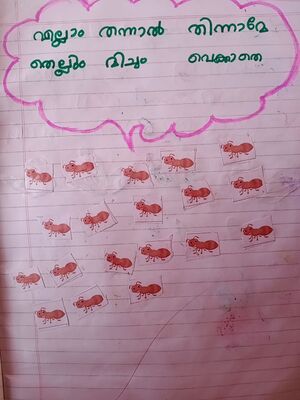 എല്ലാം തന്നാൽ തിന്നാമേ
തെല്ലും മിച്ചം വെക്കാതെ